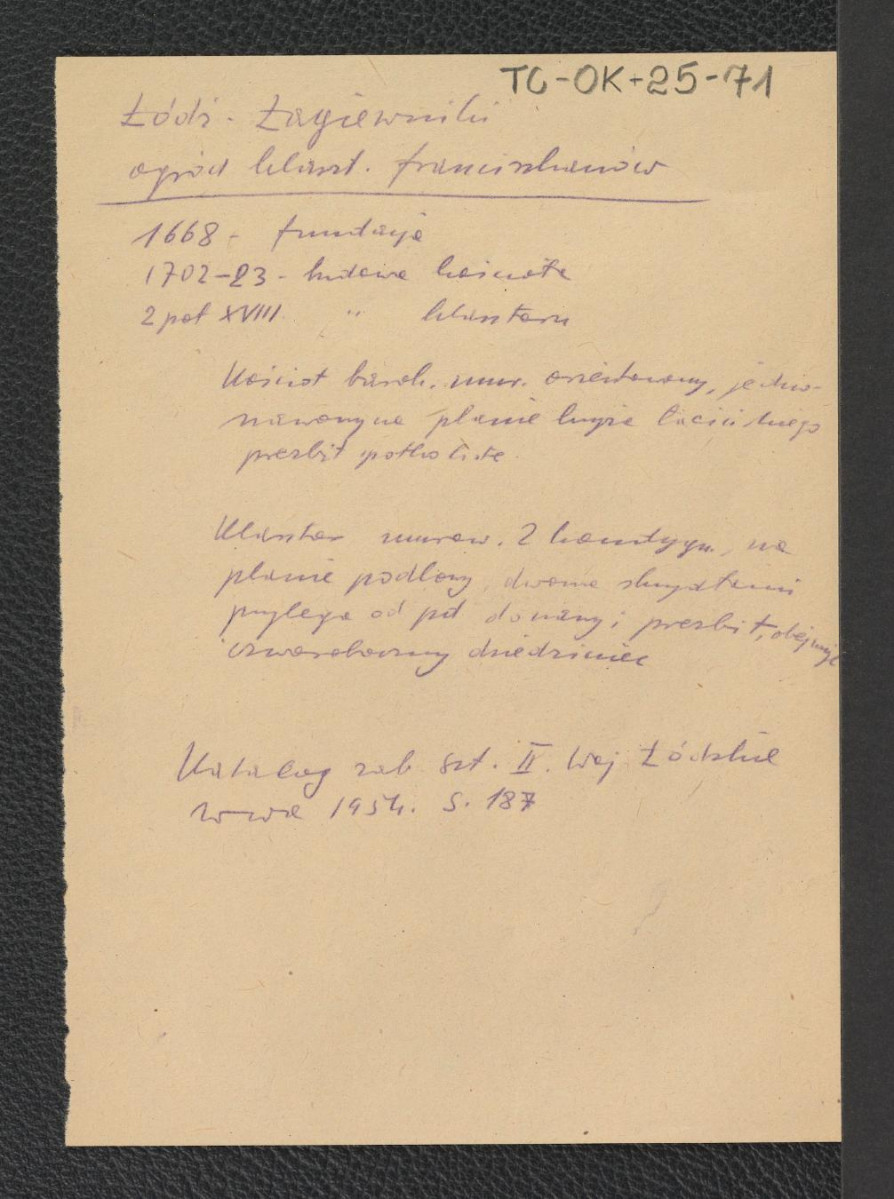 TC-OK-25-71
Łódź - Łagiewniki
ogród klaszt. franciszkanów
1668 - fundacja
1702-23 - budowa kościoła
2 poł XVIII. " klasztoru
Kościół barok. mur. orientowany, jedno-
nawowy na planie krzyża łacińskiego
prezbit półkoliste
Klasztor murow. 2 kondygn., na
planie podkowy, dwoma skrzydłami
przylega od płd do nawy i prezbit, obejmuje
czworoboczny dziedziniec
Katalog zab szt. II. Woj Łódzkie
W-wa 1954. S. 187